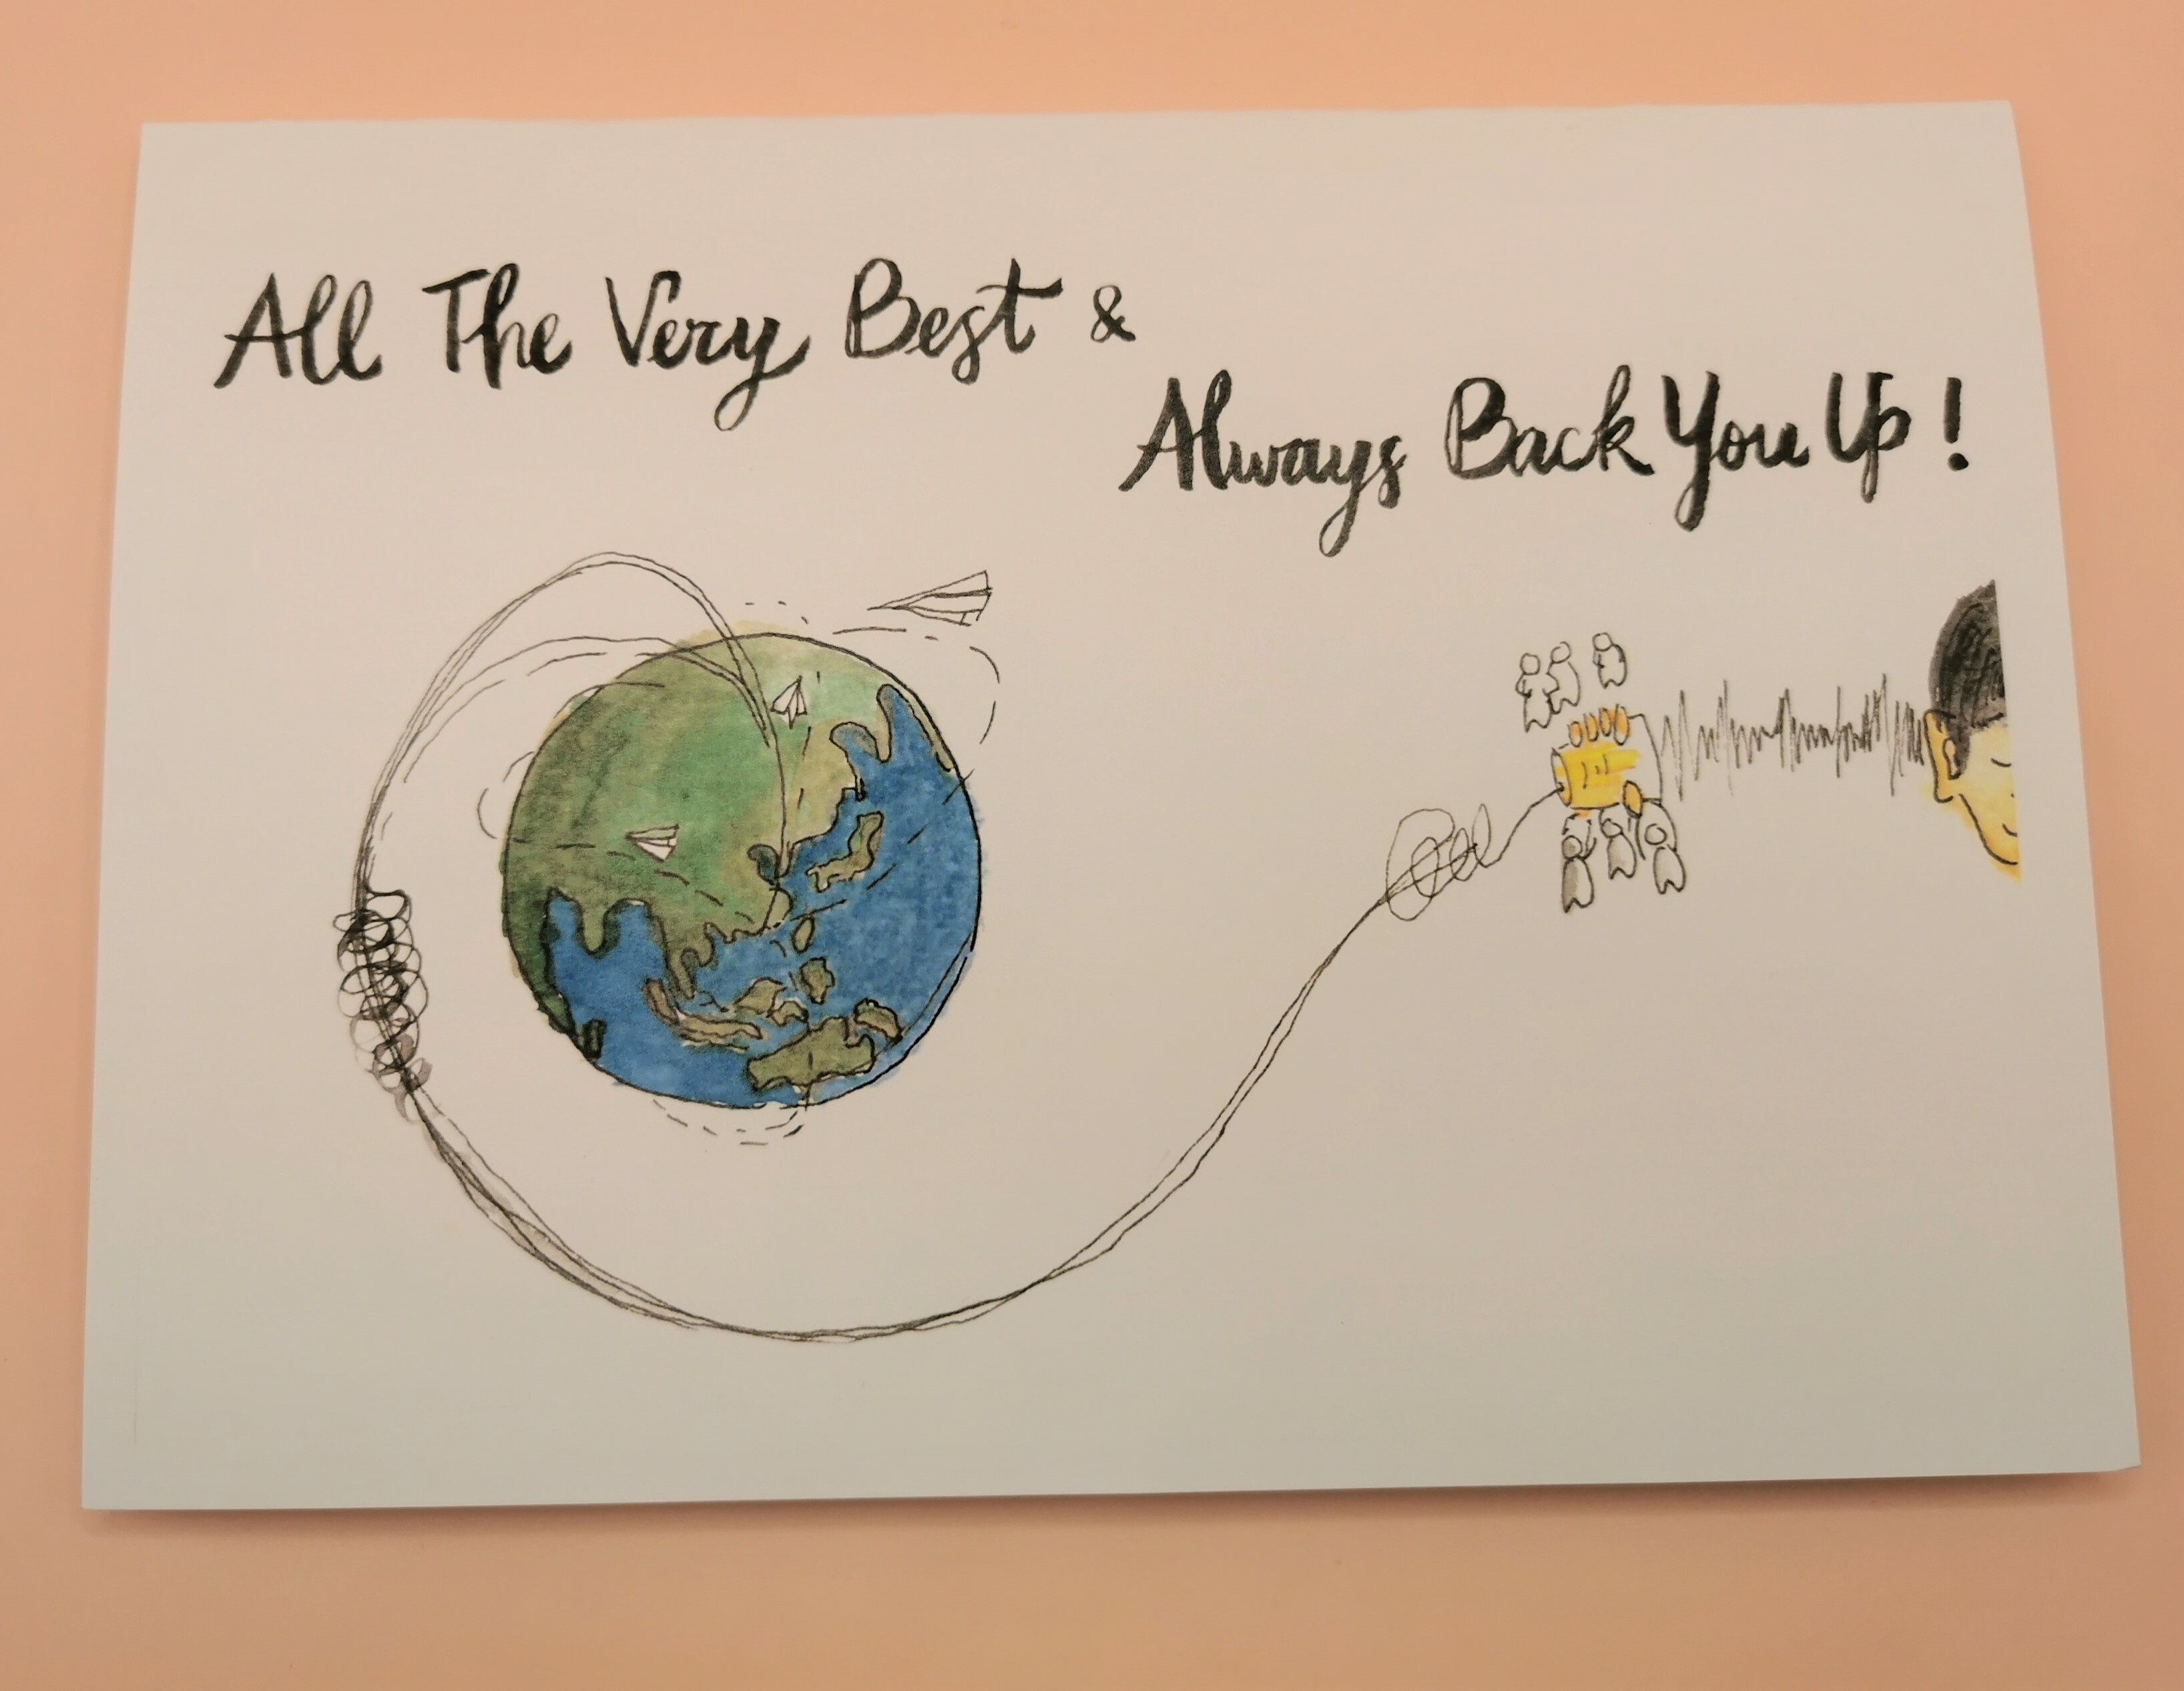 All The Very Best &
Always Back You Up!